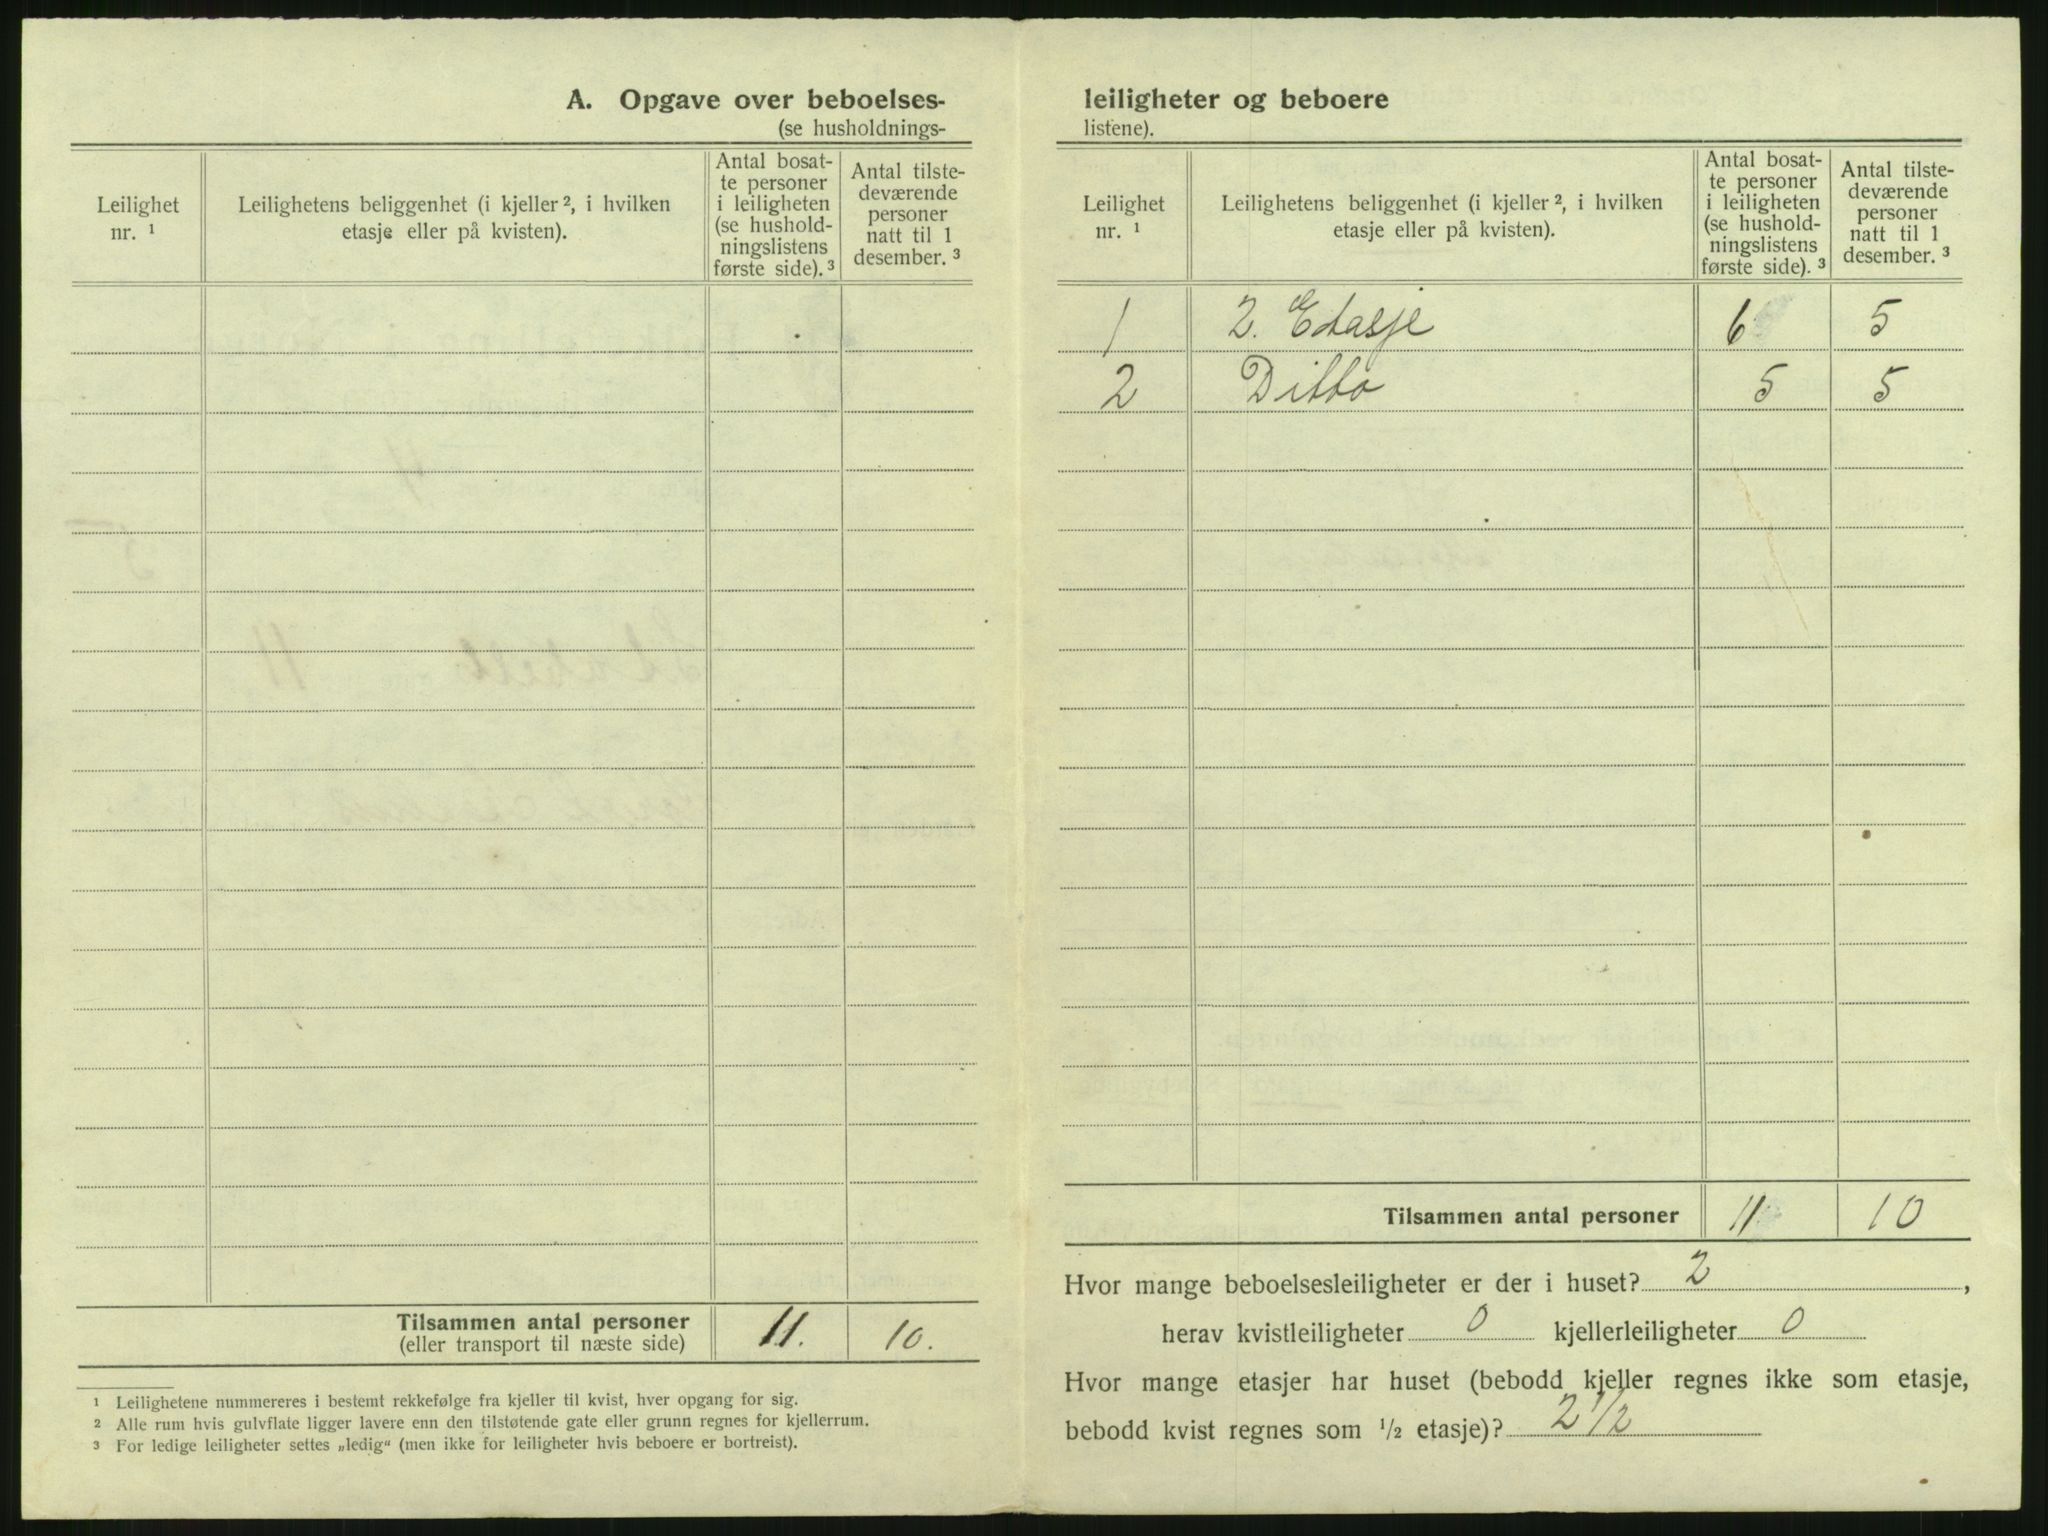 A. Opgave over beboelses-
(se husholdnings-
Leilighet
nr. ¹
Leilighetens beliggenhet (i kjeller ², i hvilken
etasje eller på kvisten).
Antal bosat-
te personer
i leiligheten
(se hushold-
ningslistens
første side). ³
Antal tilste-
deværende
personer
natt til 1
desember. ³
Tilsammen antal personer 11. 10.
(eller transport til næste side)
¹ Leilighetene nummereres i bestemt rekkefølge fra kjeller til kvist, hver opgang for sig.
² Alle rum hvis gulvflate ligger lavere enn den tilstøtende gate eller grunn regnes for kjellerrum.
³ For ledige leiligheter settes „ledig“ (men ikke for leiligheter hvis beboere er bortreist).
leiligheter og beboere
listene).
Leilighet
nr. ¹
Leilighetens beliggenhet (i kjeller ², i hvilken
etasje eller på kvisten).
Antal bosat-
te personer
i leiligheten
(se hushold-
ningslistens
første side). ³
Antal tilste-
deværende
personer
natt til 1
desember. ³
1 2. Etasje 6 5
2 Ditto 5 5
Tilsammen antal personer 11 10
Hvor mange beboelsesleiligheter er der i huset? 2 ,
herav kvistleiligheter 0 kjellerleiligheter 0
Hvor mange etasjer har huset (bebodd kjeller regnes ikke som etasje,
bebodd kvist regnes som ½ etasje)? 2 1/2